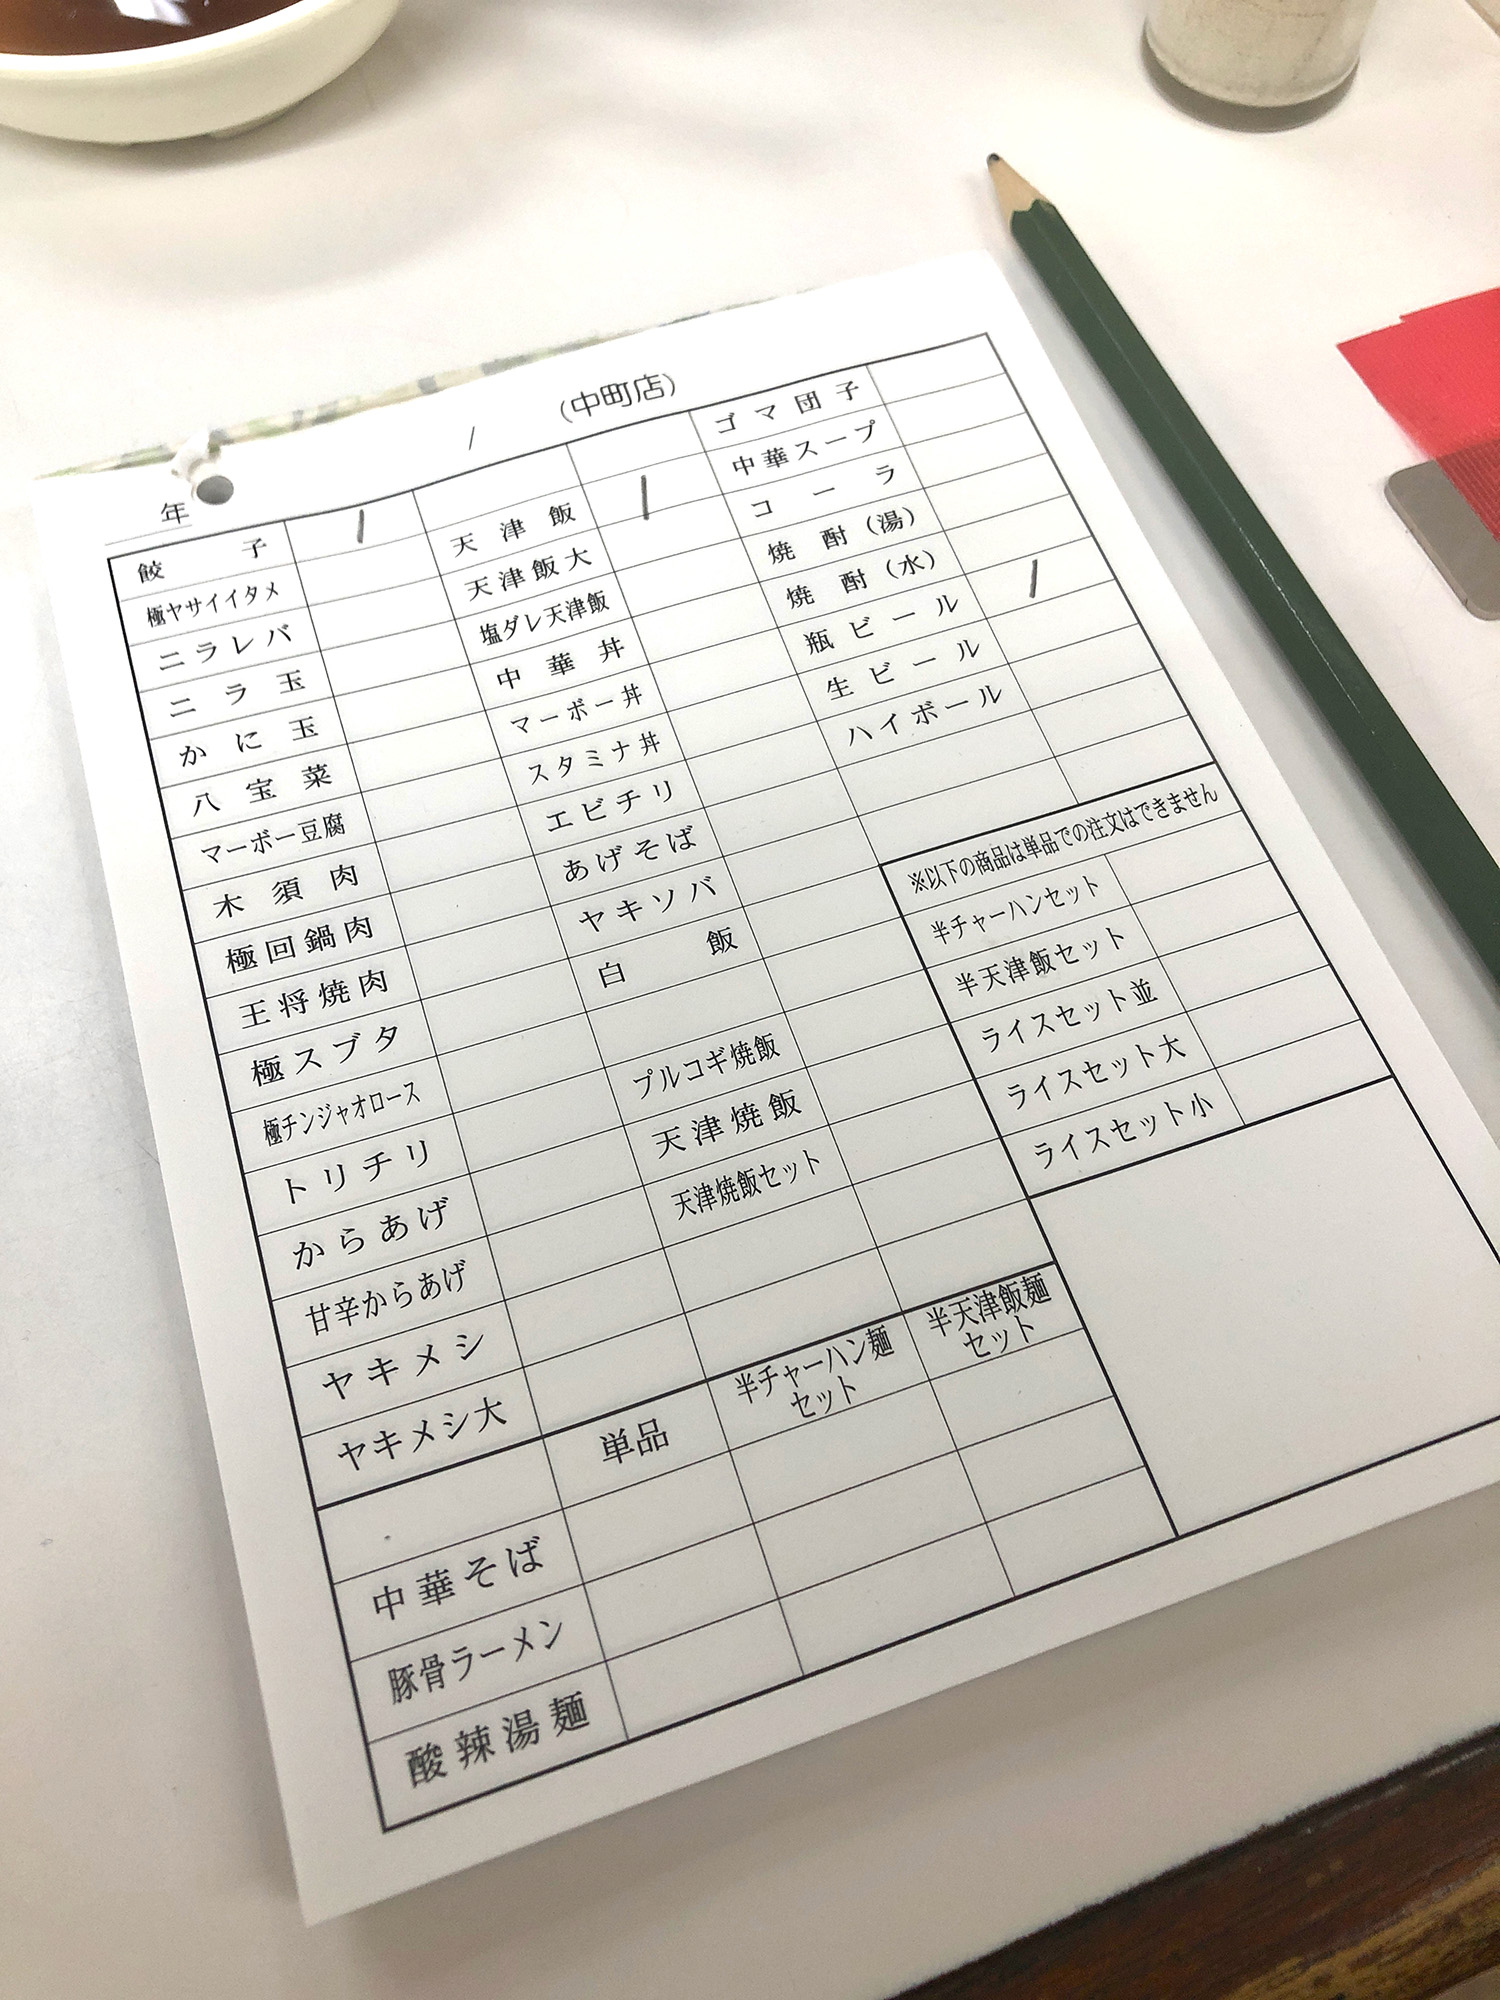 年 / (中町店)
餃子 /
極ヤサイイタメ
ニラレバ
ニラ玉
かに玉
八宝菜
マーボー豆腐
木須肉
極回鍋肉
王将焼肉
極スブタ
極チンジャオロース
トリチリ
からあげ
甘辛からあげ
ヤキメシ
ヤキメシ大
天津飯 /
天津飯大
塩ダレ天津飯
中華丼
マーボー丼
スタミナ丼
エビチリ
あげそば
ヤキソバ
白飯
プルコギ焼飯
天津焼飯
天津焼飯セット
ゴマ団子
中華スープ
コーラ
焼酎(湯)
焼酎(水)
瓶ビール /
生ビール
ハイボール
※以下の商品は単品での注文はできません
半チャーハンセット
半天津飯セット
ライスセット並
ライスセット大
ライスセット小
単品
半チャーハン麺
セット
半天津飯麺
セット
中華そば
豚骨ラーメン
酸辣湯麺